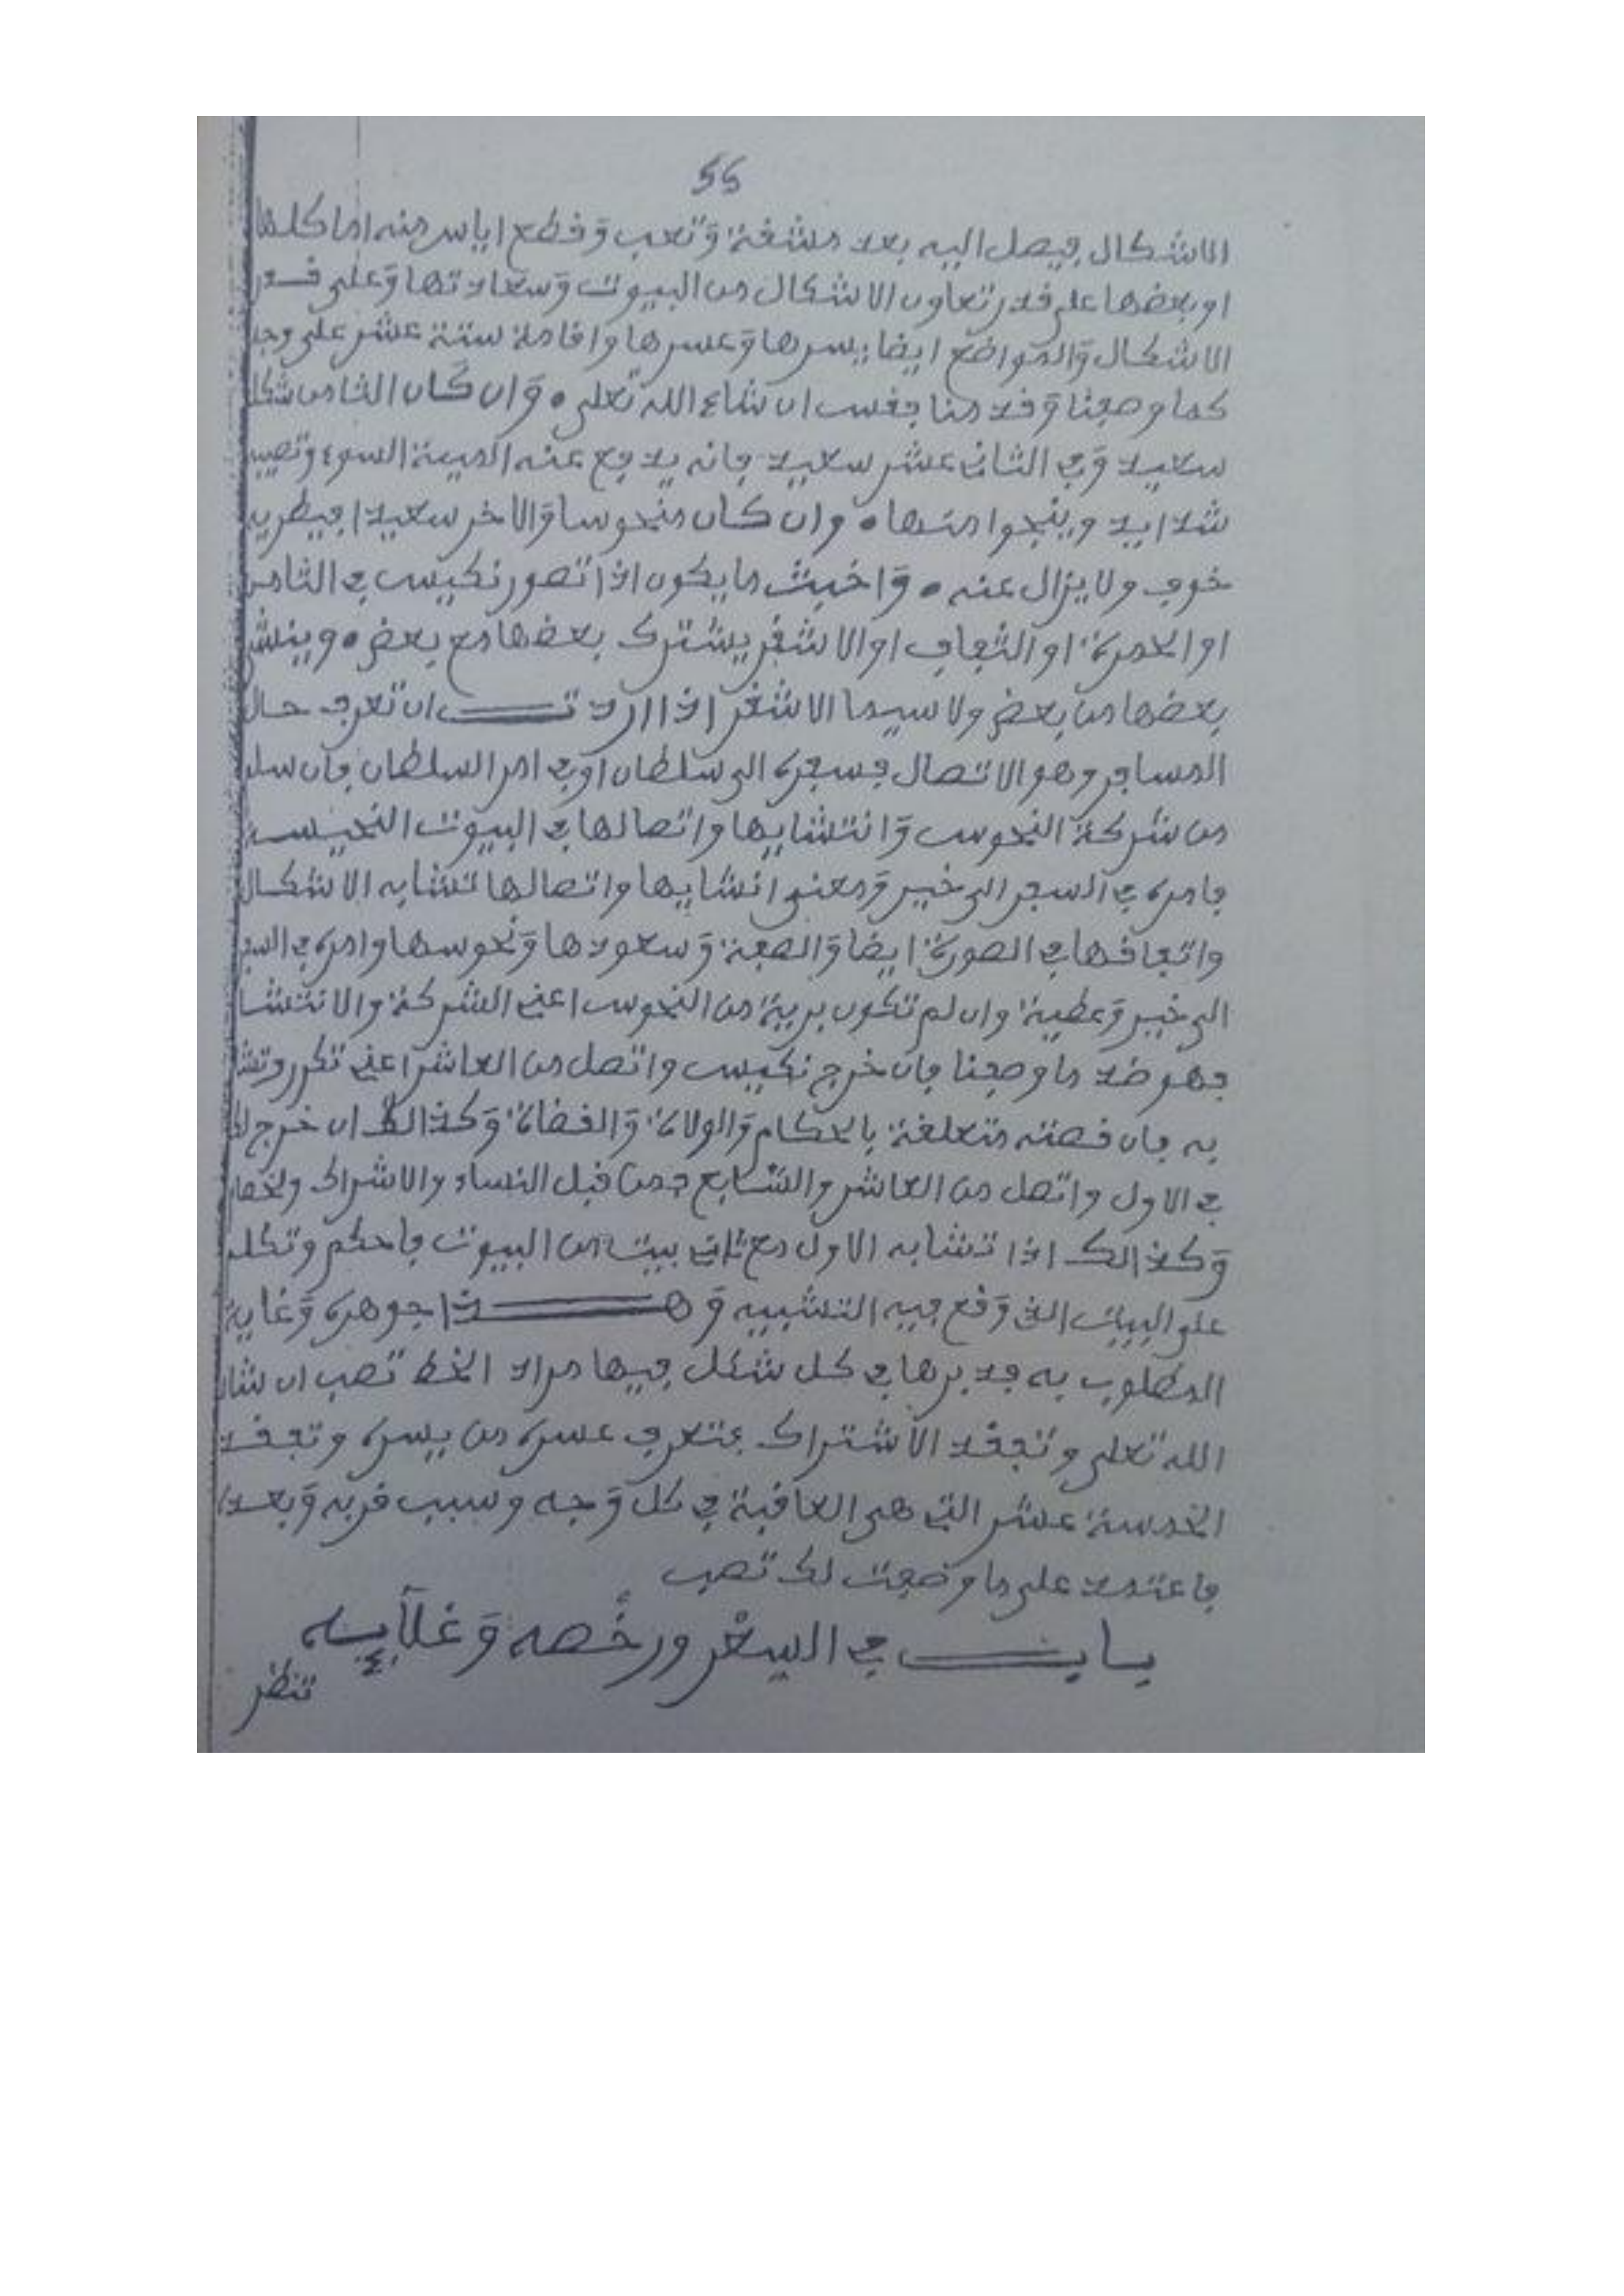 55
الاشكال فيصل اليه بعد مشقة وتعب وقطع اياس منه اما كلها
او بعضها على قدر تعاون الاشكال من البيوت وسعادتها وعلى قدر
الاشكال والمواضع ايضا يسرها وعسرها واقامة ستة عشر على وجه
كما وصفنا وقدمنا فقس ان شاء الله تعلى ٥ وان كان الثامن شكل
سعيد وفي الثاني عشر سعيد فانه يدفع عنه الميتة السوء وتصيبه
شدايد وينجوا منها ٥ وان كان منحوسا والاخر سعيدا فيطريه
خوف ولا يزال عنه ٥ واخبث ما يكون اذا تصور نكيس في الثامن
او الحمرة او الثقاف او الاشقر يشترك بعضها مع بعض ٥ وينش
بعضها من بعض ولا سيما الاشقر اذا اردت ان تعرف حال
المسافر وهو الاتصال فسفره الى سلطان او في امر السلطان فان سلم
من شركة النحوس وانتشابها واتصالها في البيوت النحيسة
فامره في السفر الى خير ومعنى انشابها واتصالها تشابه الاشكال
واتفاقها في الصورة ايضا والصفة وسعودها ونحوسها وامره في السفر
الى خير وعطية وان لم تكون برية من النحوس اعني الشركة والانتشا
فهو ضد ما وصفنا فان خرج نكيس واتصل من العاشر اعني تكرر وتشا
به فان قصته متعلقة بالحكام والولاة والقضاة وكذالك ان خرج لك
في الاول واتصل من العاشر والسابع فمن قبل النساء والاشراك وخصام
وكذالك اذا تشابه الاول مع ثاني بيت من البيوت فاحكم وتكلم
على البيت الذي وقع فيه التشبيه وهذا جوهره وغاية
المطلوب به فدبرها في كل شكل فيها مراد الخط تصب ان شا
الله تعلى وتفقد الاشتراك فتعرف عسره من يسره وتفقد
الخمسة عشر التي هي العاقبة في كل وجه وسبب قربه وبعده
فاعتمد على ما وضعت لك تصب
باب في السعر ورخصه وغلآيه
تنظر